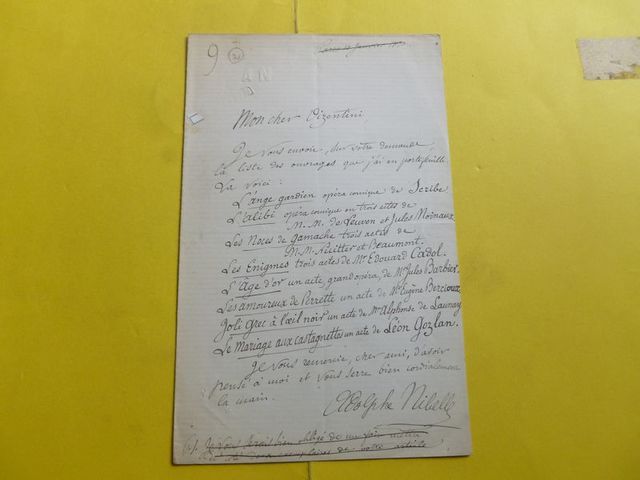 9
Mon cher Vizentini,
Je vous envoie, sur votre demande
la liste des ouvrages que j'ai en portefeuille
La voici :
L'ange gardien opéra comique de Scribe
L'alibi opéra comique en trois actes de
M. M. de Leuven et Jules Moinaux
Les Noces de gamache trois actes de
M. M. Nuitter et Beaumont.
Les Enigmes trois actes de Mr Edouard Cadol.
L'Âge d'or un acte, grand opéra, de Mr Jules Barbier.
Les amoureux de Perrette un acte de Mr Eugène Bercioux
Joli grec à l'œil noir un acte de Mr Alphonse de Launay
Le Mariage aux castagnettes un acte de Léon Gozlan.
Je vous remercie, cher ami, d'avoir
pensé à moi et vous serre bien cordialement
la main.
Adolphe Nibelle
Je vous serais bien obligé de
exemplaires de votre article